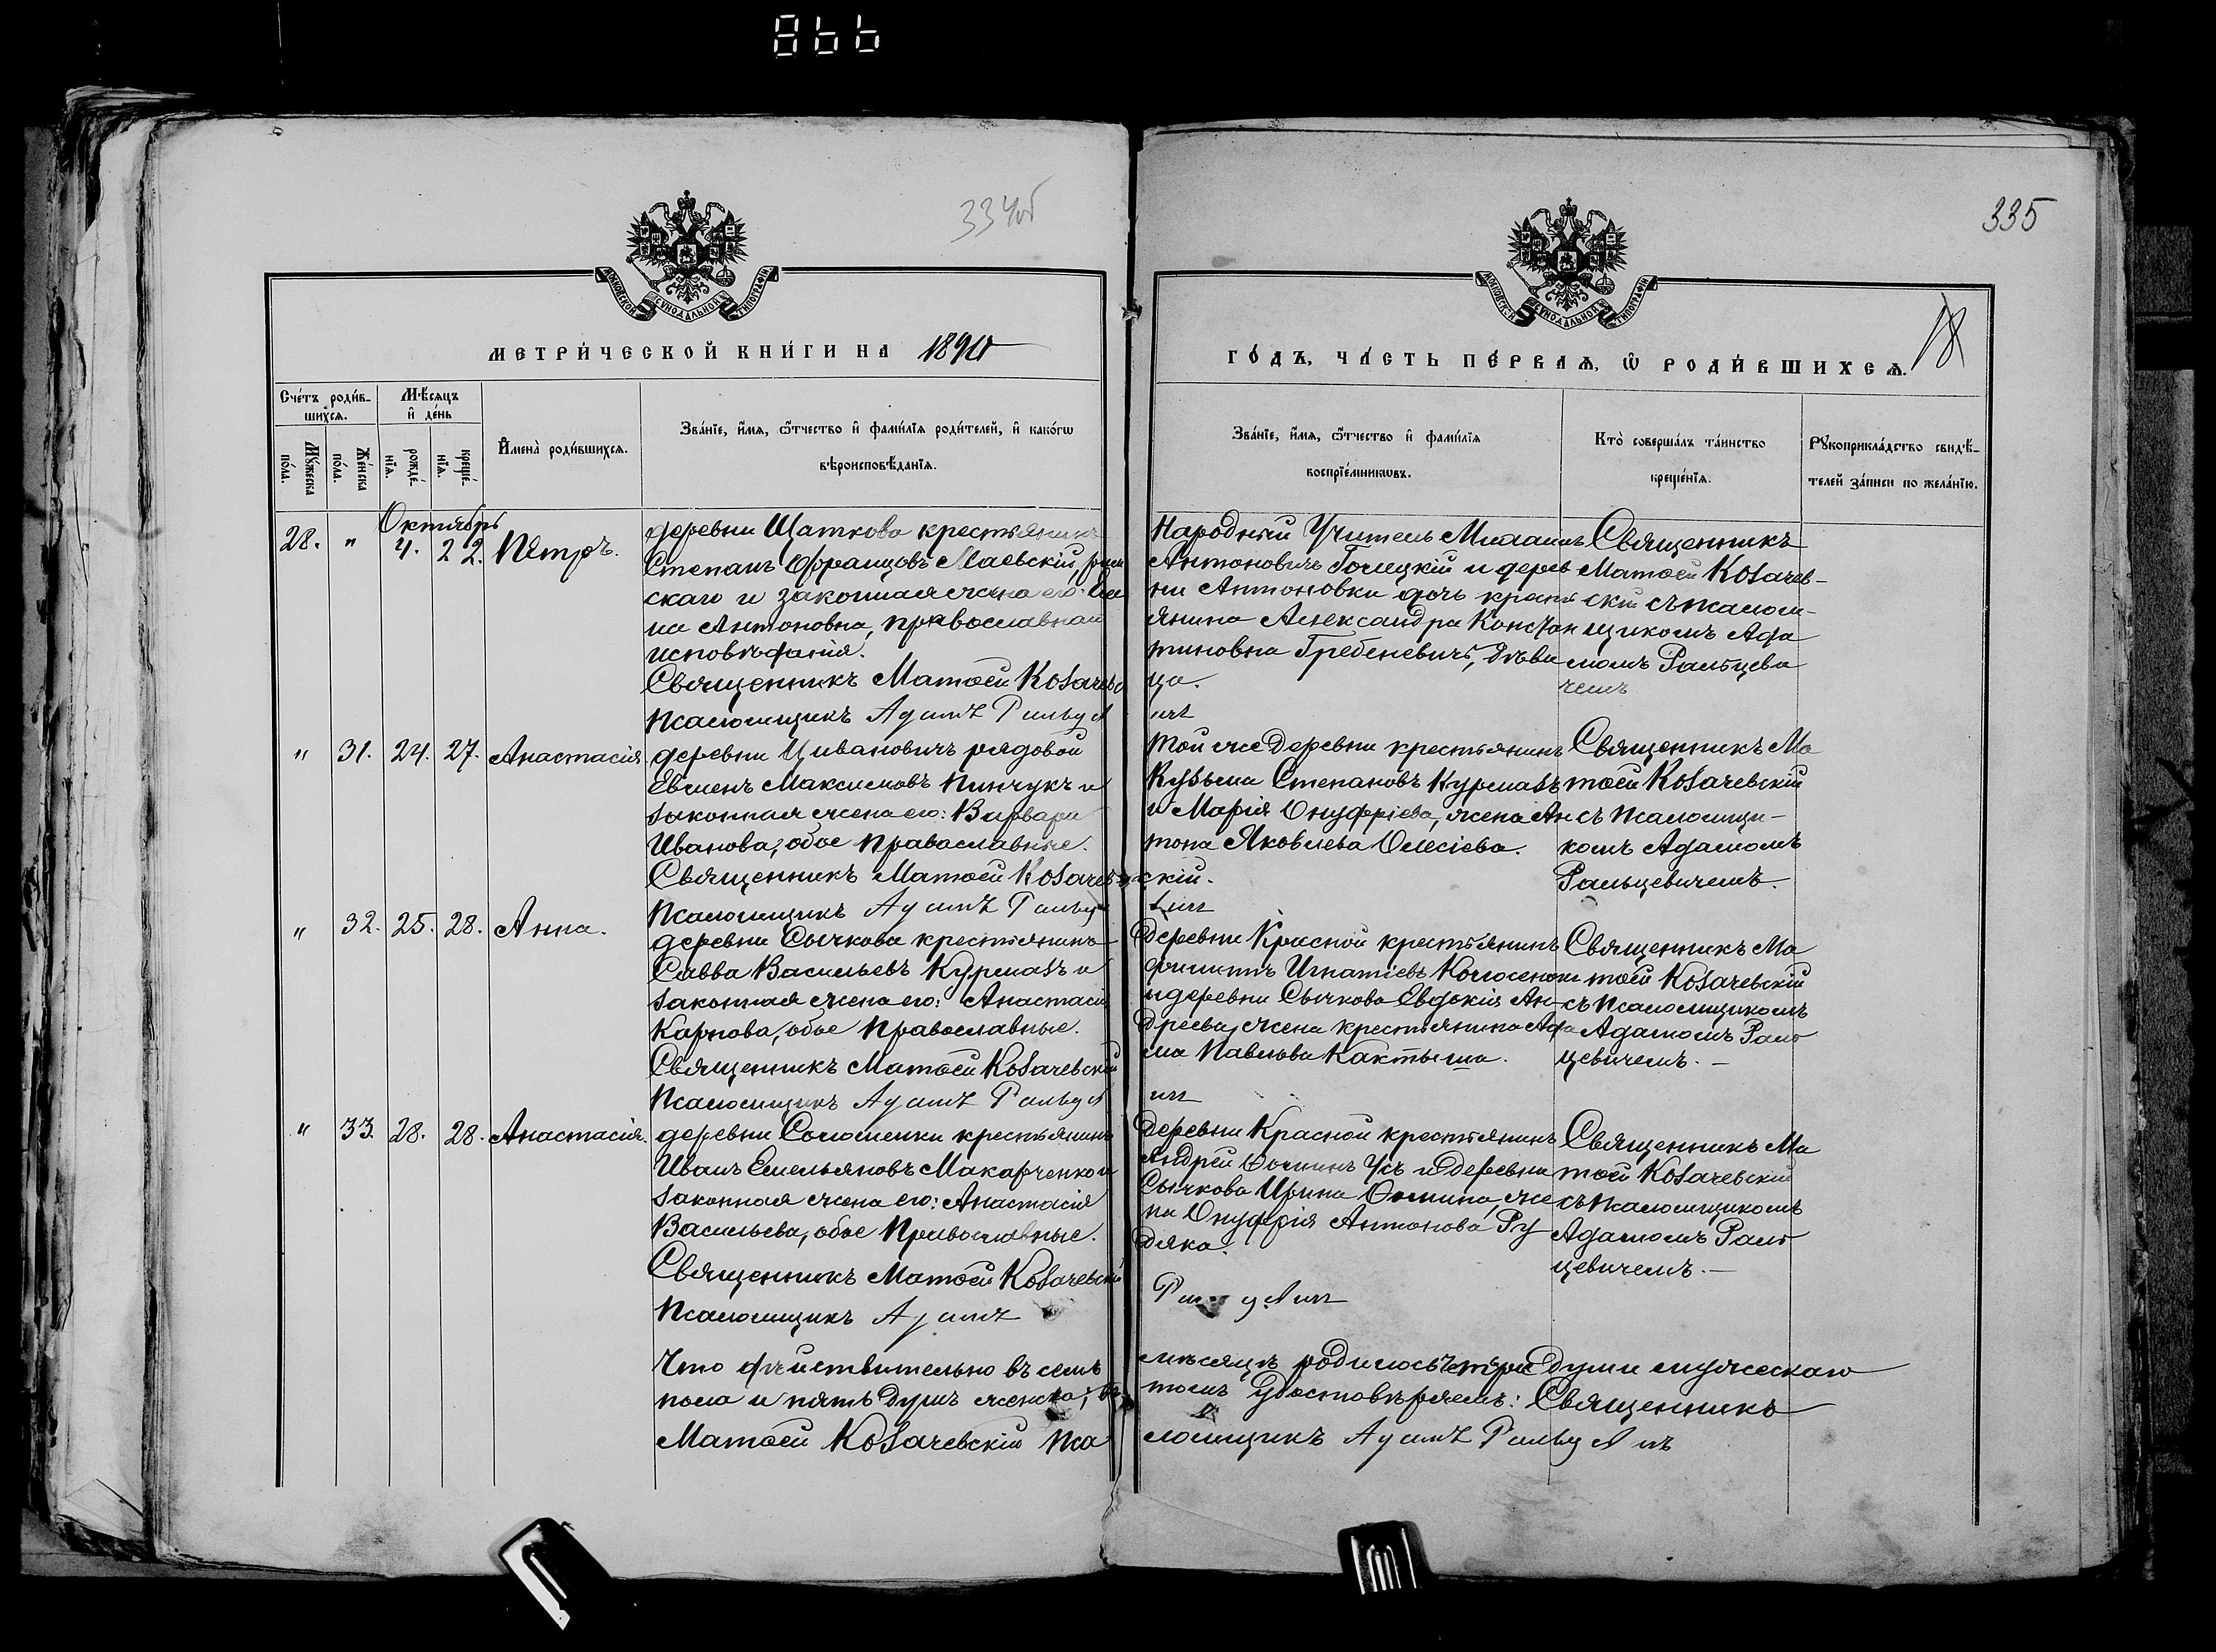 866
334об
335
МОСКОВСКОЙ СѴНОДАЛЬНОЙ ТИПОГРАФІИ
МОСКОВСКОЙ СѴНОДАЛЬНОЙ ТИПОГРАФІИ
18
МЕТРИ́ЧЕСКОЙ КНИ́ГИ НА 1890
ГО́ДЪ, ЧА́СТЬ ПЕ́РВАѦ, Ѡ҆ РОДИ́ВШИХСѦ.
Сче́тъ роди́в-
шихсѧ.
Мѣ́сѧцъ
и҆ де́нь
Мꙋ́жеска
по́ла.
Же́нска
по́ла.
рожде́-
нїѧ.
креще́-
нїѧ.
И҆мена̀ роди́вшихсѧ.
Зва́нїе, и҆́мѧ, ѻ҆́тчество и҆ фамі́лїѧ роди́телей, и҆ како́гѡ
вѣроисповѣ́данїѧ.
Зва́нїе, и҆́мѧ, ѻ҆́тчество и҆ фамі́лїѧ
воспрїе́мникѡвъ.
Кто̀ соверша́лъ та́инство
креще́нїѧ.
Рꙋкоприкла́дство свидѣ́-
телей за́писи по жела́нїю.
Октябрь
28. " 4. 22. Петръ.
деревни Шаткова крестьянинъ
Степанъ Францовъ Маевскій, римс
скаго и законная жена его:
на Антоновна, православнаго
исповѣданія.
Священникъ Матѳей Козачевс
Псаломщикъ Адамъ Ральцев
Народный Учитель Михаилъ
Антоновичъ Голецкій и дерев
ни Антоновки дочь кресть
янина Александра Констан
тиновна Гребеневичъ, дѣви
ца.
ичъ
Священникъ
Матѳей Козачев-
скій съ псалом-
щикомъ Ада
момъ Ральцеви
чемъ
" 31. 24. 27. Анастасія.
деревни Цивановичъ рядовой
Евменъ Максимовъ Пинчукъ и
законная жена его: Варвара
Иванова, обое православные.
Священникъ Матѳей Козачев
Псаломщикъ Адамъ Ральце
той же деревни крестьянинъ
Кузьма Степановъ Курмазъ
и Марія Онуфріева, жена Ан
тона Яковлева Олесіева.
скій.
вичъ
Священникъ Ма
тѳей Козачевскій
съ псаломщи-
комъ Адамомъ
Ральцевичемъ.
" 32. 25. 28. Анна.
деревни Сычкова крестьянинъ
Савва Васильевъ Курмазъ и
законная жена его: Анастасія
Карпова, обое православные.
Священникъ Матѳей Козачевскій
Псаломщикъ Адамъ Ральцев
деревни Красной крестьянинъ
Филиппъ Игнатіевъ Колосенок
и деревни Сычкова Евдокія Ан-
дреева, жена крестьянина Ада
ма Павлова Кактыша.
ичъ
Священникъ Ма
тѳей Козачевскій
съ псаломщикомъ
Адамомъ Раль
цевичемъ. —
" 33. 28. 28. Анастасія.
деревни Соломенки крестьянинъ
Иванъ Емельяновъ Макарченко и
законная жена его: Анастасія
Васильева, обое Православные.
Священникъ Матѳей Козачевскій
Псаломщикъ Адамъ
деревни Красной крестьянинъ
Андрей Ѳоминъ Усъ и деревни
Сычкова Ирина Ѳомина, же
на Онуфрія Антонова Ру
дяка.
Ральцевичъ
Священникъ Ма
тѳей Козачевскій
съ псаломщикомъ
Адамомъ Раль
цевичемъ. —
Что дѣйствительно въ семъ мѣсяцѣ родилось четыре души мужескаго
пола и пять душъ женска, въ томъ удостовѣряемъ: Священникъ
Матѳей Козачевскій Пса ломщикъ Адамъ Ральцевичъ